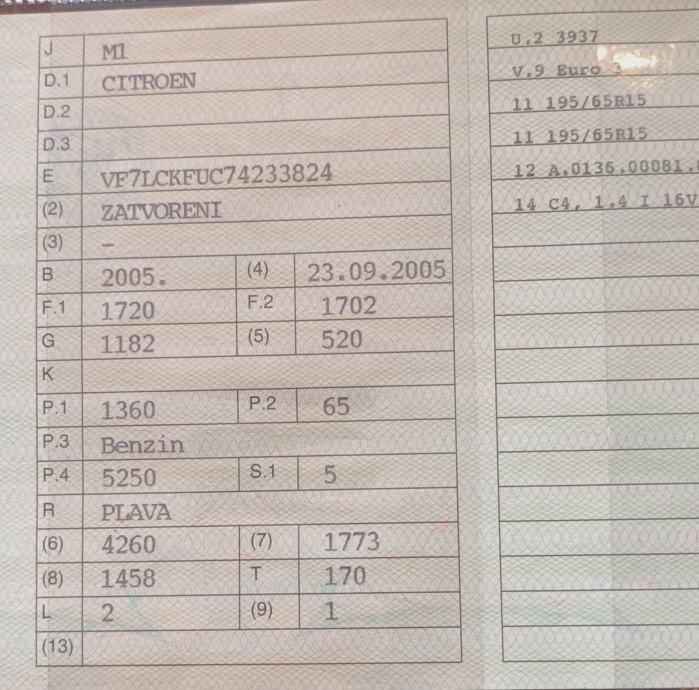 J M1
D.1 CITROEN
D.2
D.3
E VF7LCKFUC74233824
(2) ZATVORENI
(3) –
B 2005. (4) 23.09.2005
F.1 1720 F.2 1702
G 1182 (5) 520
K
P.1 1360 P.2 65
P.3 Benzin
P.4 5250 S.1 5
R PLAVA
(6) 4260 (7) 1773
(8) 1458 T 170
L 2 (9) 1
(13)
U.2 3937
V.9 Euro
11 195/65R15
11 195/65R15
12 A.0136.00081.
14 C4, 1.4 I 16V